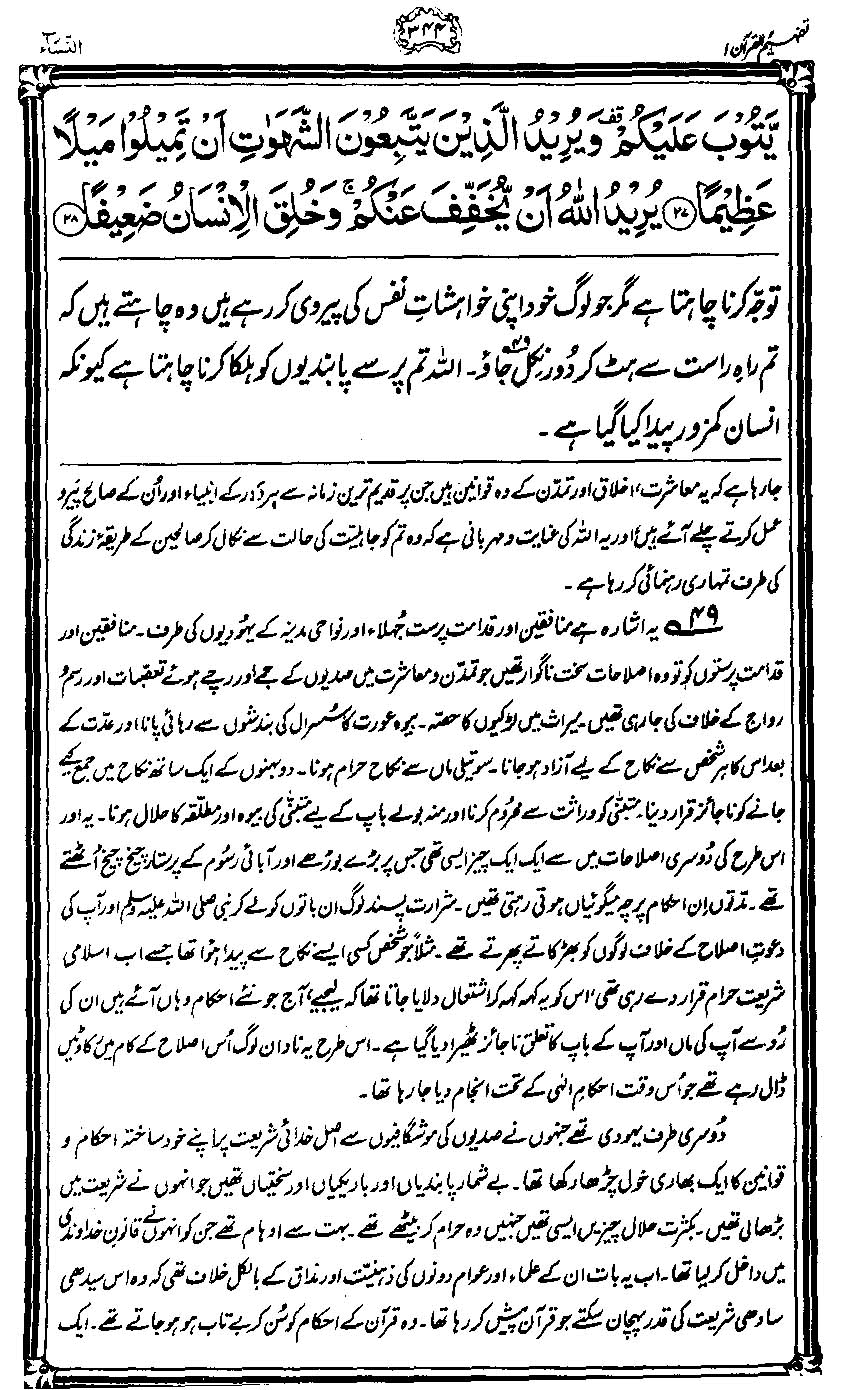 تفہیم القرآن ۱
۳۴۴
النساء ۴
يَّتُوْبَ عَلَيْكُمْ ۫ وَيُرِيْدُ الَّذِيْنَ يَتَّبِعُوْنَ الشَّهَوٰتِ اَنْ تَمِيْلُوْا مَيْلًا
عَظِيْمًا ﴿۲۷﴾ يُرِيْدُ اللّٰهُ اَنْ يُّخَفِّفَ عَنْكُمْ ۚ وَخُلِقَ الْاِنْسَانُ ضَعِيْفًا ﴿۲۸﴾
توجّہ کرنا چاہتا ہے مگر جو لوگ خود اپنی خواہشاتِ نفس کی پیروی کر رہے ہیں وہ چاہتے ہیں کہ
تم راہِ راست سے ہٹ کر دُور نکل جاؤ۴۹۔ اللہ تم پر سے پابندیوں کو ہلکا کرنا چاہتا ہے کیونکہ
انسان کمزور پیدا کیا گیا ہے۔
جا رہا ہے کہ یہ معاشرت، اخلاق اور تمدّن کے وہ قوانین ہیں جن پر قدیم ترین زمانہ سے ہر دَور کے انبیاء اور اُن کے صالح پَیرو
عمل کرتے چلے آئے ہیں، اور یہ اللہ کی عنایت و مہربانی ہے کہ وہ تم کو جاہلیّت کی حالت سے نکال کر صالحین کے طریقۂ زندگی
کی طرف تمہاری رہنمائی کر رہا ہے۔
۴۹ یہ اشارہ ہے منافقین اور قدامت پرست جُہلاء اور نواحیِ مدینہ کے یہودیوں کی طرف۔ منافقین اور
قدامت پرستوں کو تو وہ اصلاحات سخت ناگوار تھیں جو تمدّن و معاشرت میں صدیوں کے جمے اور رچے ہوئے تعصّبات اور رسم و
رواج کے خلاف کی جا رہی تھیں۔ میراث میں لڑکیوں کا حصّہ۔ بیوہ عورت کا سُسرال کی بندشوں سے رہائی پانا اور عدّت کے
بعد اس کا ہر شخص سے نکاح کے لیے آزاد ہو جانا۔ سوتیلی ماں سے نکاح حرام ہونا۔ دو بہنوں کے ایک ساتھ نکاح میں جمع کیے
جانے کو ناجائز قرار دینا۔ متبنّٰی کو وراثت سے محرُوم کرنا اور منہ بولے باپ کے لیے متبنّٰی کی بیوہ اور مطلّقہ کا حلال ہونا۔ یہ اور
اس طرح کی دُوسری اصلاحات میں سے ایک ایک چیز ایسی تھی جس پر بڑے بوڑھے اور آبائی رسُوم کے پرستار چیخ چیخ اُٹھتے
تھے۔ مدّتوں اِن احکام پر چہ میگوئیاں ہوتی رہتی تھیں۔ شرارت پسند لوگ ان باتوں کو لے کر نبی صلی اللہ علیہ وسلم اور آپ کی
دعوتِ اصلاح کے خلاف لوگوں کو بھڑکاتے پھرتے تھے۔ مثلاً جو شخص کسی ایسے نکاح سے پیدا ہوُا تھا جسے اب اسلامی
شریعت حرام قرار دے رہی تھی، اس کو یہ کہہ کہہ کر اشتعال دلایا جاتا تھا کہ لیجیے، آج جو نئے احکام وہاں آئے ہیں ان کی
رُو سے آپ کی ماں اور آپ کے باپ کا تعلق ناجائز ٹھیرا دیا گیا ہے۔ اس طرح یہ نادان لوگ اُس اصلاح کے کام میں رُکاوٹیں
ڈال رہے تھے جو اُس وقت احکامِ الٰہی کے تحت انجام دیا جا رہا تھا۔
دُوسری طرف یہودی تھے جنہوں نے صدیوں کی موشگافیوں سے اصل خدائی شریعت پر اپنے خود ساختہ احکام و
قوانین کا ایک بھاری خول چڑھا رکھا تھا۔ بے شمار پابندیاں اور باریکیاں اور سختیاں تھیں جو انہوں نے شریعت میں
بڑھا لی تھیں۔ بکثرت حلال چیزیں ایسی تھیں جنہیں وہ حرام کر بیٹھے تھے۔ بہت سے اوہام تھے جن کو انہوں نے قانونِ خداوندی
میں داخل کر لیا تھا۔ اب یہ بات ان کے علماء اور عوام دونوں کی ذہنیّت اور مذاق کے بالکل خلاف تھی کہ وہ اس سیدھی
سادھی شریعت کی قدر پہچان سکتے جو قرآن پیش کر رہا تھا۔ وہ قرآن کے احکام کو سُن کر بے تاب ہو ہو جاتے تھے۔ ایک